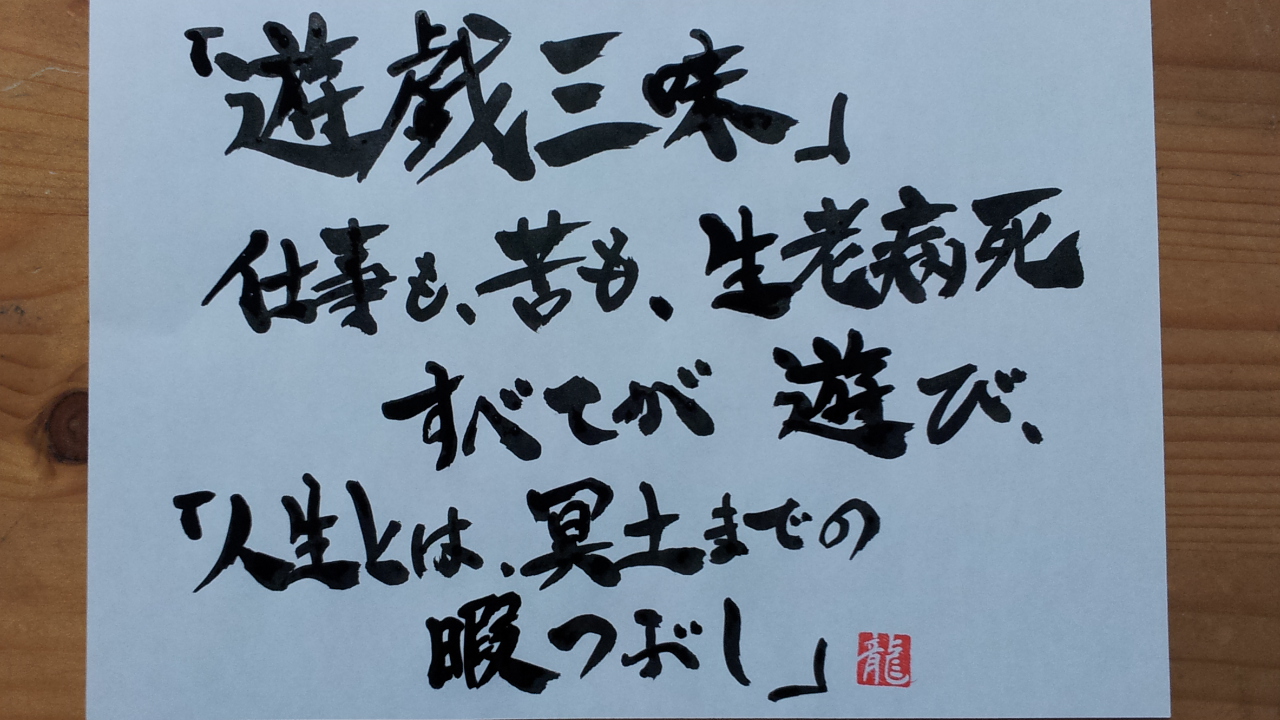 「遊戯三味」
仕事も、苦も、生老病死
すべてが 遊び、
「人生とは、冥土までの
暇つぶし」
龍